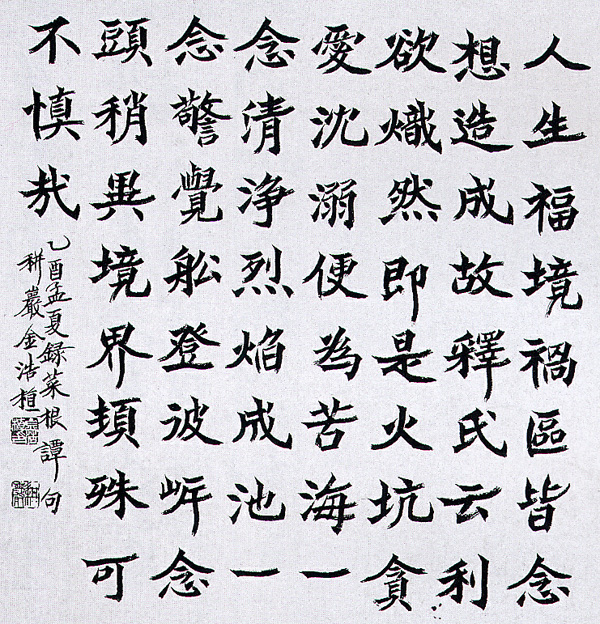 人生福境禍區皆念
想造成故釋氏云利
欲熾然即是火坑貪
愛沈溺便為苦海一
念清净烈焰成池一
念警覺舩登彼岸念
頭稍異境界頓殊可
不慎哉
乙酉孟夏録菜根譚句
耕巖金浩桓